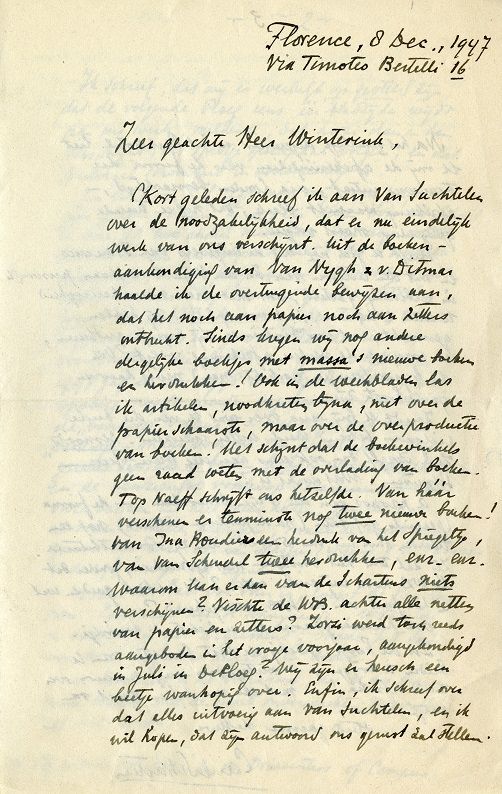 Florence, 8 Dec., 1947
Via Timoteo Bertelli 16
Zeer geachte Heer Winterink,
Kort geleden schreef ik aan Van Suchtelen
over de noodzakelijkheid, dat er nu eindelijk
werk van ons verschijnt. Uit de boeken-
aankondiging van Van Nijgh & v. Ditmar
haalde ik de overtuigende bewijzen aan,
dat het noch aan papier noch aan zetters
ontbrekt. Sinds kregen wij nog andere
dergelijke boekjes met massa's nieuwe boeken
en herdrukken! Ook in de weekbladen las
ik artikelen, noodkreten bijna, niet over de
papierschaarste, maar over de overproductie
van boeken! Het schijnt dat de boekewinkels
geen raad weten met de overlading van boeken.
Top Naeff schrijft ons hetzelfde. Van háár
verschenen er tenminste nog twee nieuwe boeken!
van Ina Boudier een herdruk van het Spiegeltje,
van Van Schendel twee herdrukken, enz. enz.
Waarom kan er dan van de Schartens niets
verschijnen? Vischte de W.B. achter alle netten
van papier en zetters? Zorzi werd toch reeds
aangeboden in het vroge voorjaar, aangekondigd
in Juli in De Ploeg? Wij zijn er heusch een
beetje wanhopig over. Enfin, ik schreef over
dat alles uitvoerig aan Van Suchtelen, en ik
wil hopen, dat zijn antwoord ons gerust zal stellen.